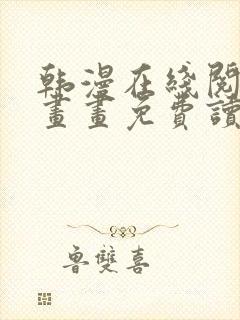 韩漫在綫閱
畫畫免費讀
魯雙喜